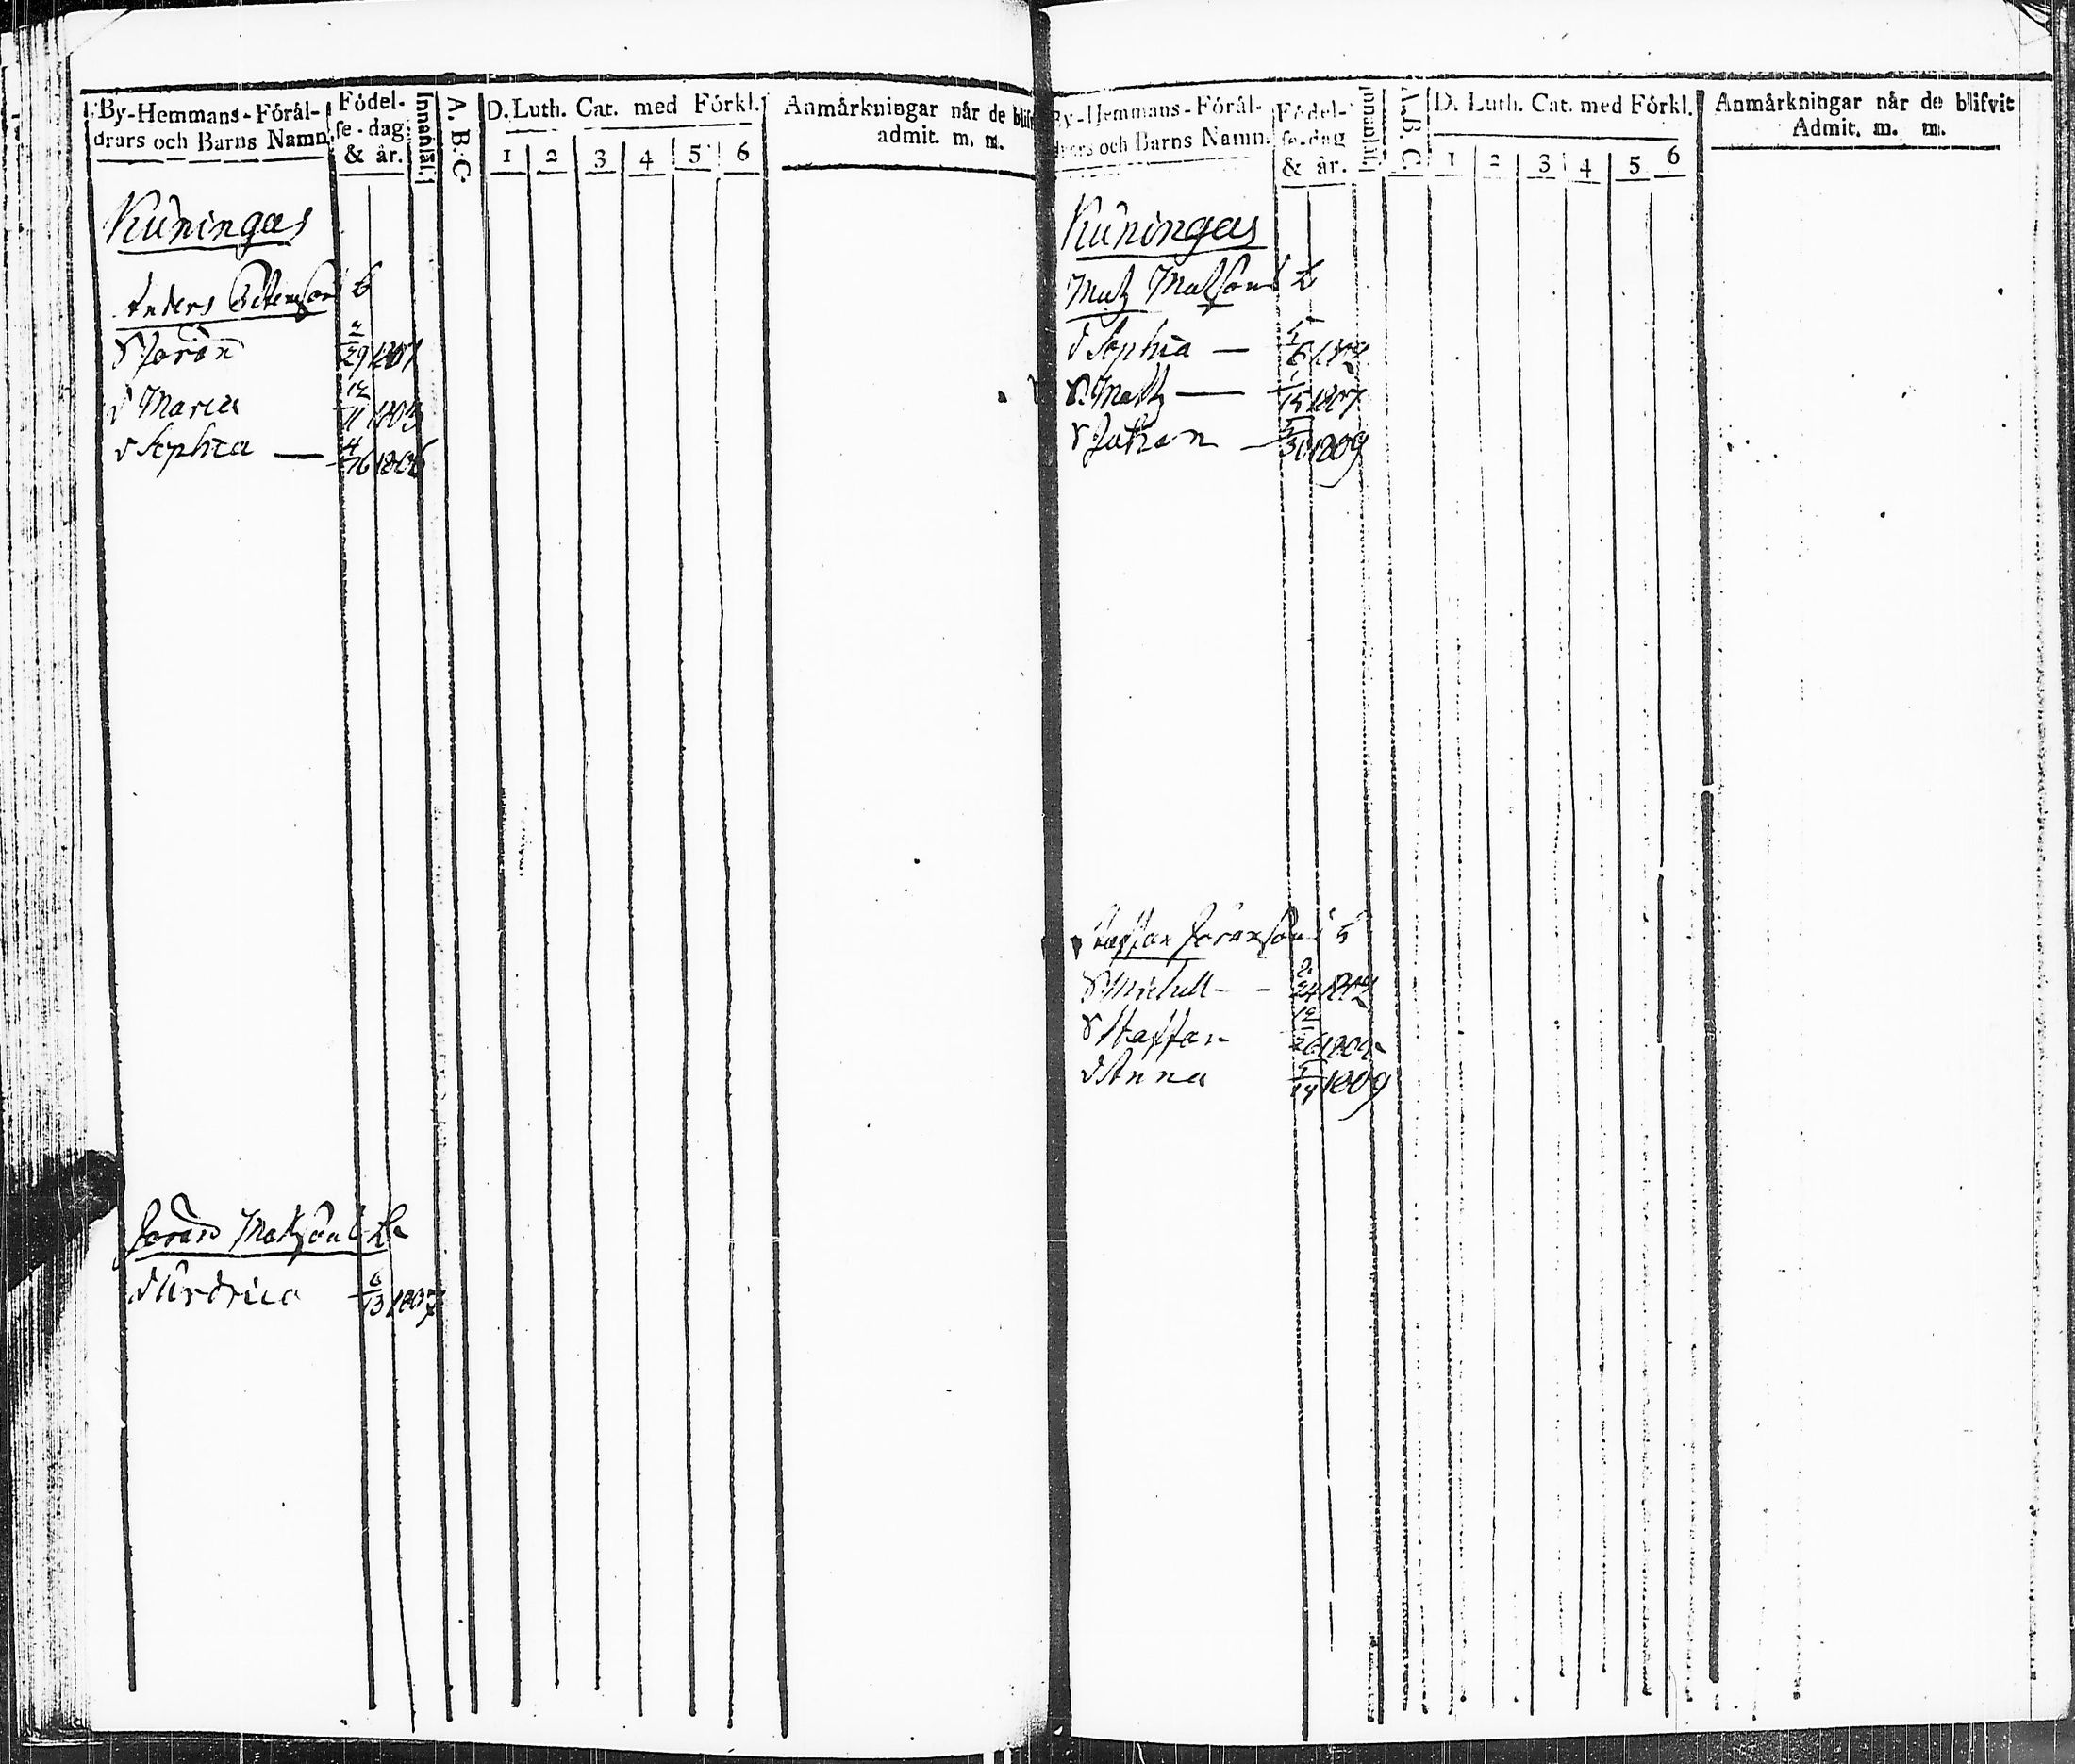 By-Hemmans-Förål-
drars och Barns Namn.
Födel-
se-dag
& år.
Innanläs.
A. B. C
D. Luth. Cat. med Förkl.
1 2 3 4 5 6
Anmårkningar når de
admit. m. m.
Kuningas
Anders
S Jöran 2/29 1801
d Maria 12/11 1803
d Sophia — 4/16 1806
Jöran Matzson
d Ulrica 6/13 1807
By-Hemmans-Förål-
drars och Barns Namn.
Födel-
se-dag
& år.
A. B. C.
D. Luth. Cat. med Förkl.
1 2 3 4 5 6
Anmårkningar når de blifvit
Admit. m. m.
Kuningas
Matz Matsons
d Sophia —
S. Matz — 1/15 1807
S Johan — 1809
Staffan Jöransons
S Michell - - 2/24
S Staffan
d Anna 1809